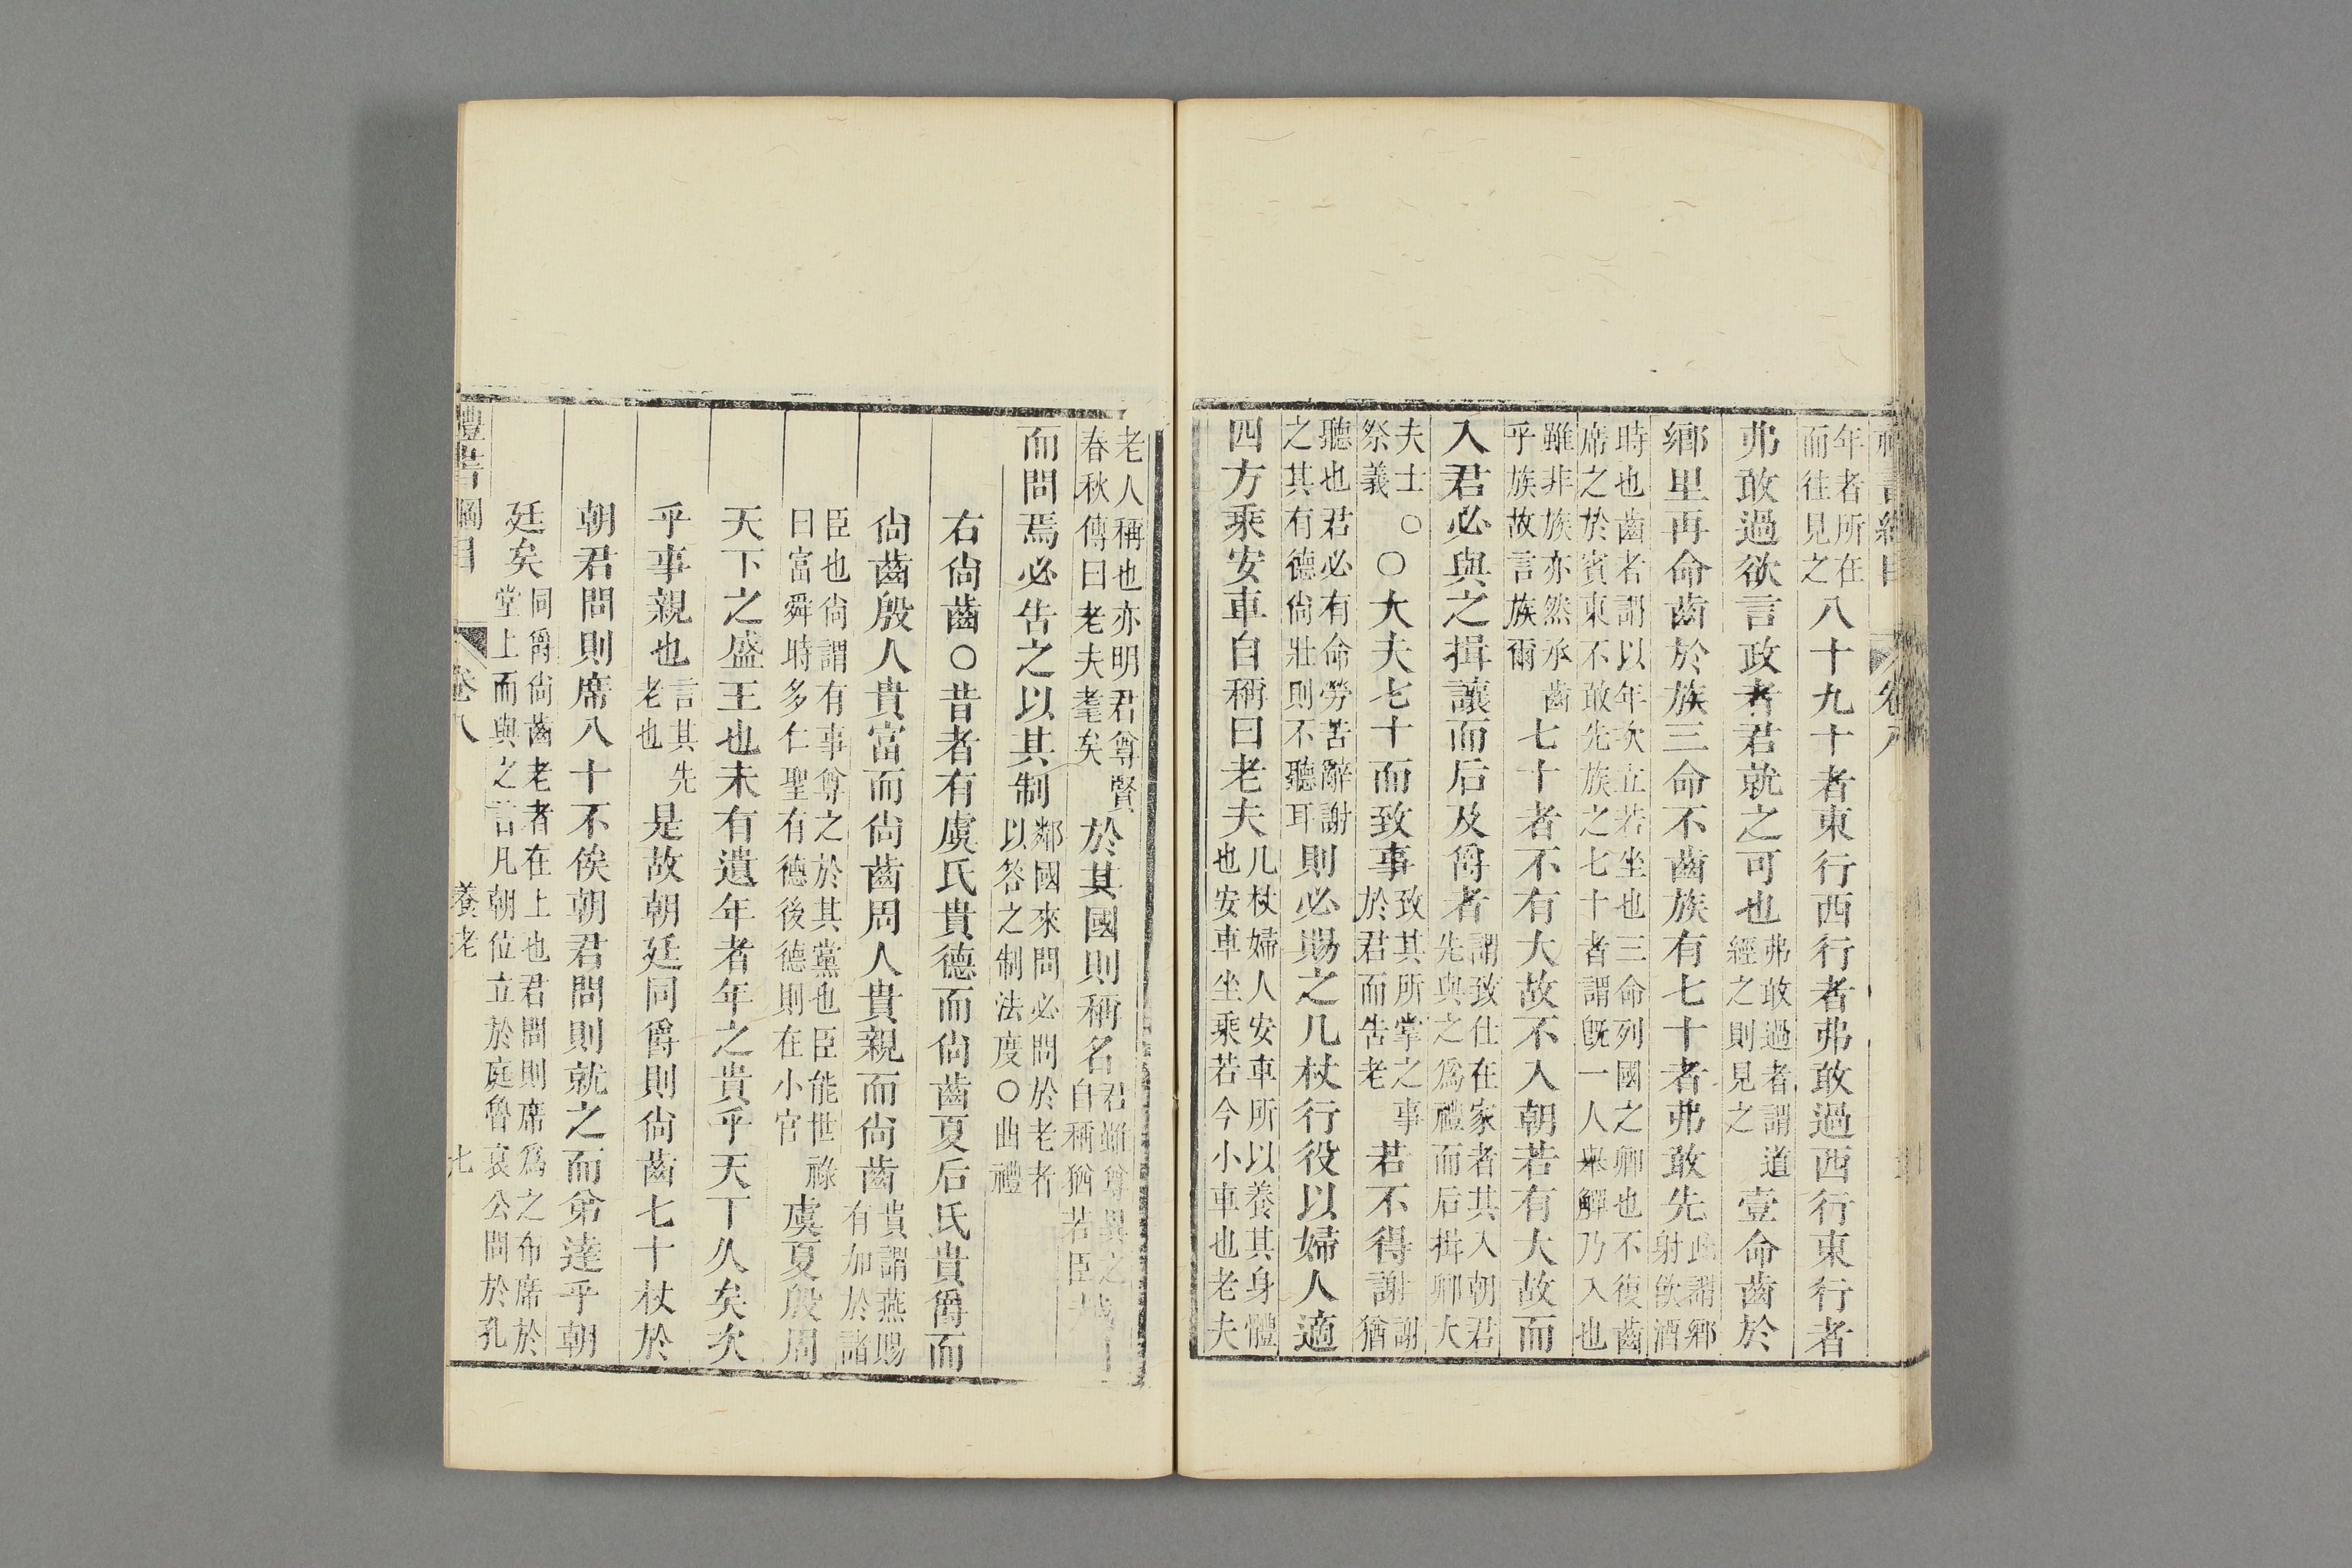 年者所在
而往見之
八十九十者東行西行者弗敢過西行東行者
弗敢過欲言政者君就之可也
弗敢過者謂道
經之則見之
壹命齒於
鄉里再命齒於族三命不齒族有七十者弗敢先
此謂鄉
射飲酒
時也齒者謂以年次立若坐也三命列國之卿也不復齒
席之於賓東不敢先族之七十者謂旣一人舉觶乃入也
雖非族亦然承齒
乎族故言族爾
七十者不有大故不入朝若有大故而
入君必與之揖讓而后及爵者
謂致仕在家者其入朝君
先與之爲禮而后揖卿大
夫士○
祭義
○大夫七十而致事
致其所掌之事
於君而告老
若不得謝
謝
猶
聽也君必有命勞苦辭謝
之其有德尙壯則不聽耳
則必賜之几杖行役以婦人適
四方乘安車自稱曰老夫
几杖婦人安車所以養其身體
也安車坐乘若今小車也老夫
老人稱也亦明君尊賢
春秋傳曰老夫耄矣
於其國則稱名
君雖尊異之
自稱猶若臣
而問焉必告之以其制
鄰國來問必問於老者
以答之制法度○曲禮
右尙齒○昔者有虞氏貴德而尙齒夏后氏貴爵而
尙齒殷人貴富而尙齒周人貴親而尙齒
貴謂燕賜
有加於諸
臣也尙謂有事尊之於其黨也臣能世祿
曰富舜時多仁聖有德後德則在小官
虞夏殷周
天下之盛王也未有遺年者年之貴乎天下久矣次
乎事親也
言其先
老也
是故朝廷同爵則尙齒七十杖於
朝君問則席八十不俟朝君問則就之而弟達乎朝
廷矣
同爵尙齒老者在上也君問則席爲之布席於
堂上而與之言凡朝位立於庭魯哀公問於孔
禮書綱目
卷八
養老
七